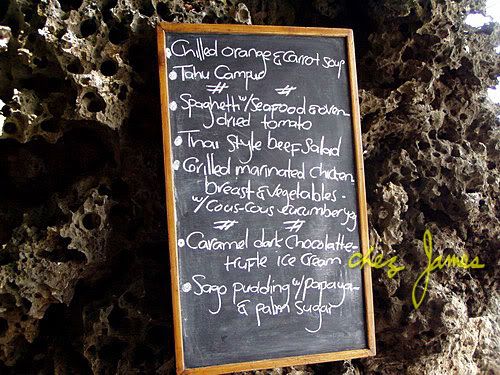 • Chilled orange & Carrot soup
• Tahu Campur
# #
• Spaghetti w/Seafood & oven
dried tomato
• Thai Style beef Salad
• Grilled marinated chicken
breast & vegetables -
w/ Cous-Cous & cucumber
# #
• Caramel dark Chocolatte-
truple Ice Cream
• Sago pudding w/papaya-
& palm Sugar
chez James